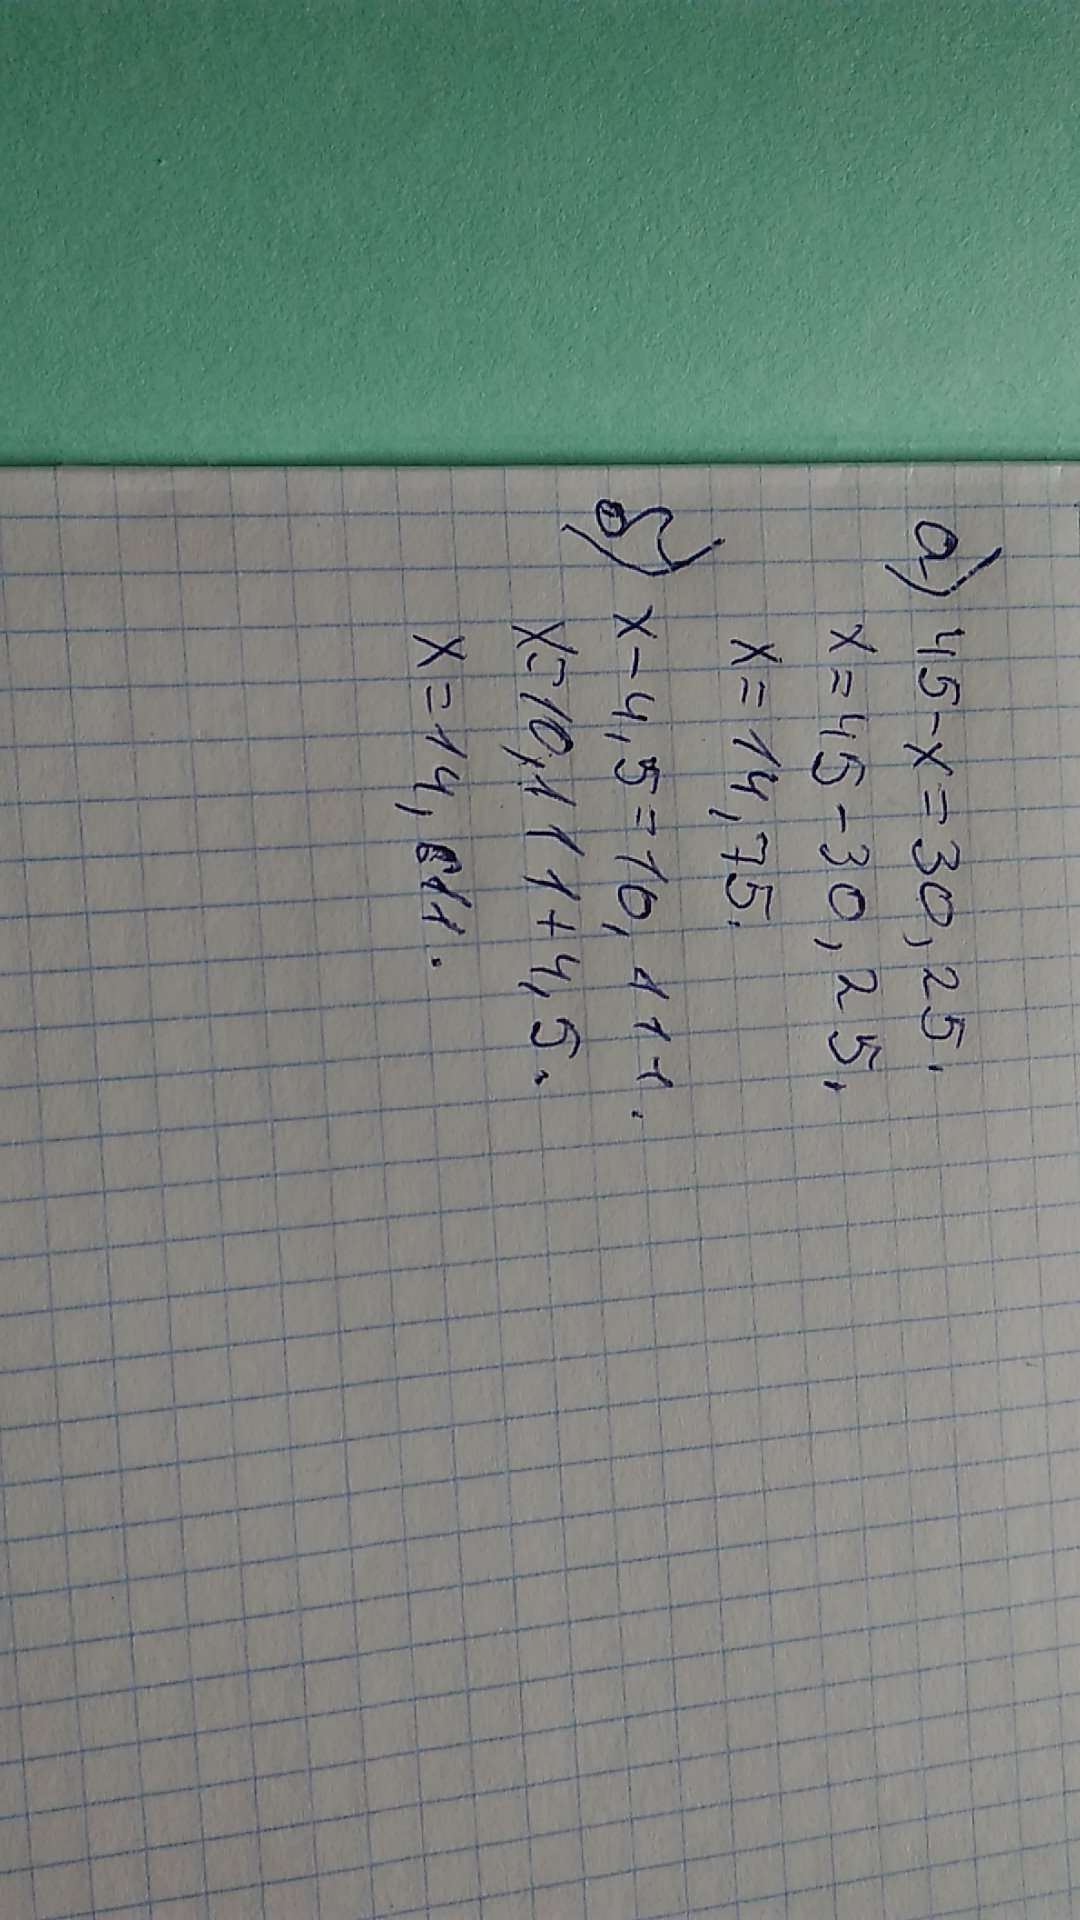 а) 45-x=30,25.
x=45-30,25.
x=14,75.
б) x-4,5=10,111.
x=10,111+4,5.
x=14,611.